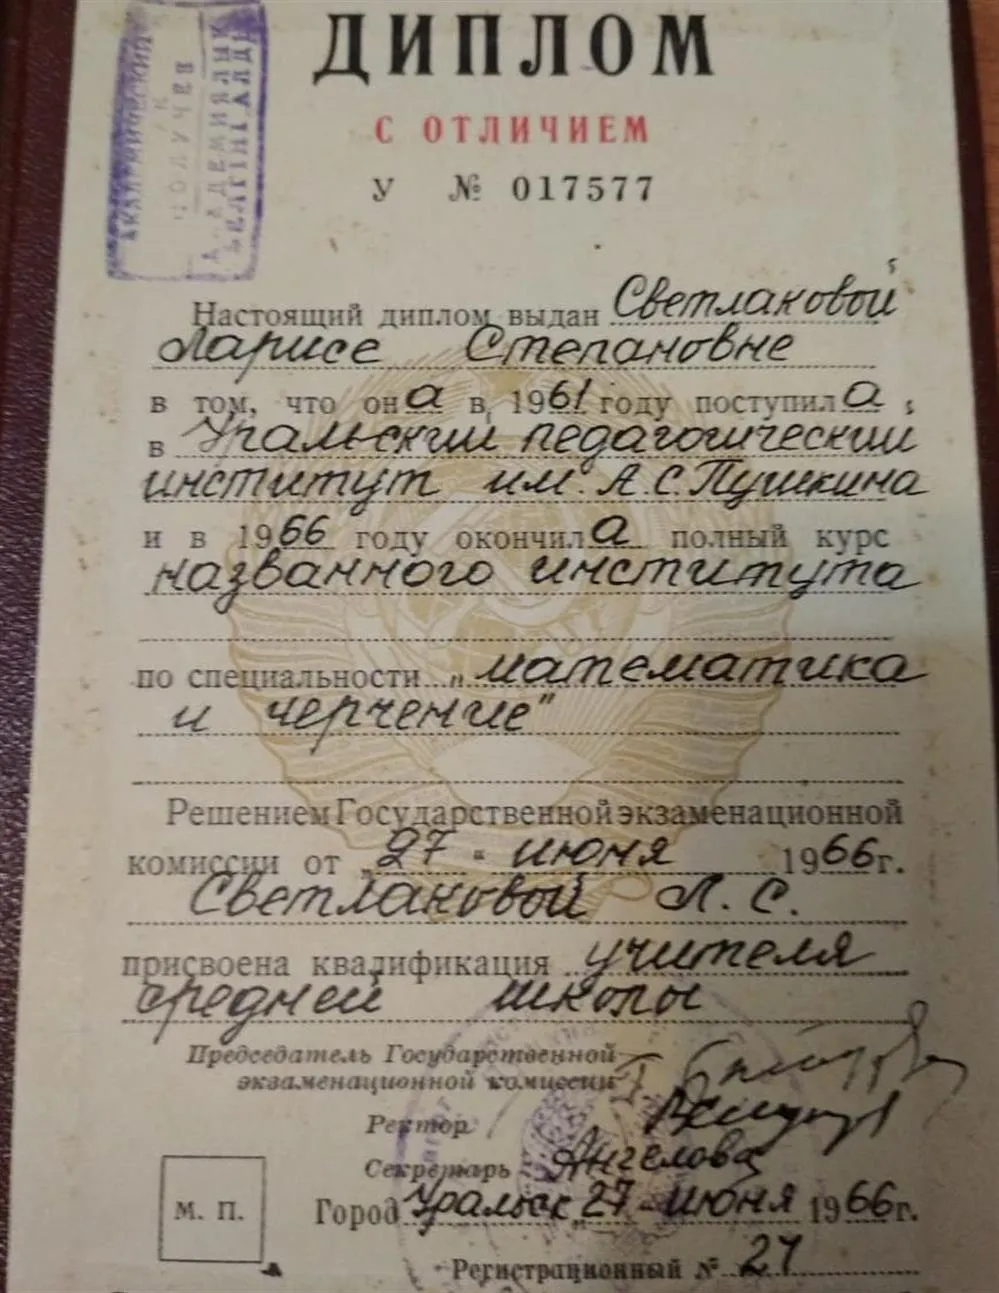 ДИПЛОМ
С ОТЛИЧИЕМ
У № 017577
АКАДЕМИЧЕСКИЙ
ПОЛУЧЕН
Настоящий диплом выдан Светлаковой
Ларисе Степановне
в том, что она в 1961 году поступила
в Уральский педагогический
институт им. А.С. Пушкина
и в 1966 году окончила полный курс
названного института
по специальности „математика
и черчение"
Решением Государственной экзаменационной
комиссии от „27" июня 1966 г.
Светлаковой Л. С.
присвоена квалификация учителя
средней школы
Председатель Государственной
экзаменационной комиссии
Ректор
Секретарь Ангелова
М. П.
Город Уральск „27" июня 1966 г.
Регистрационный № 27